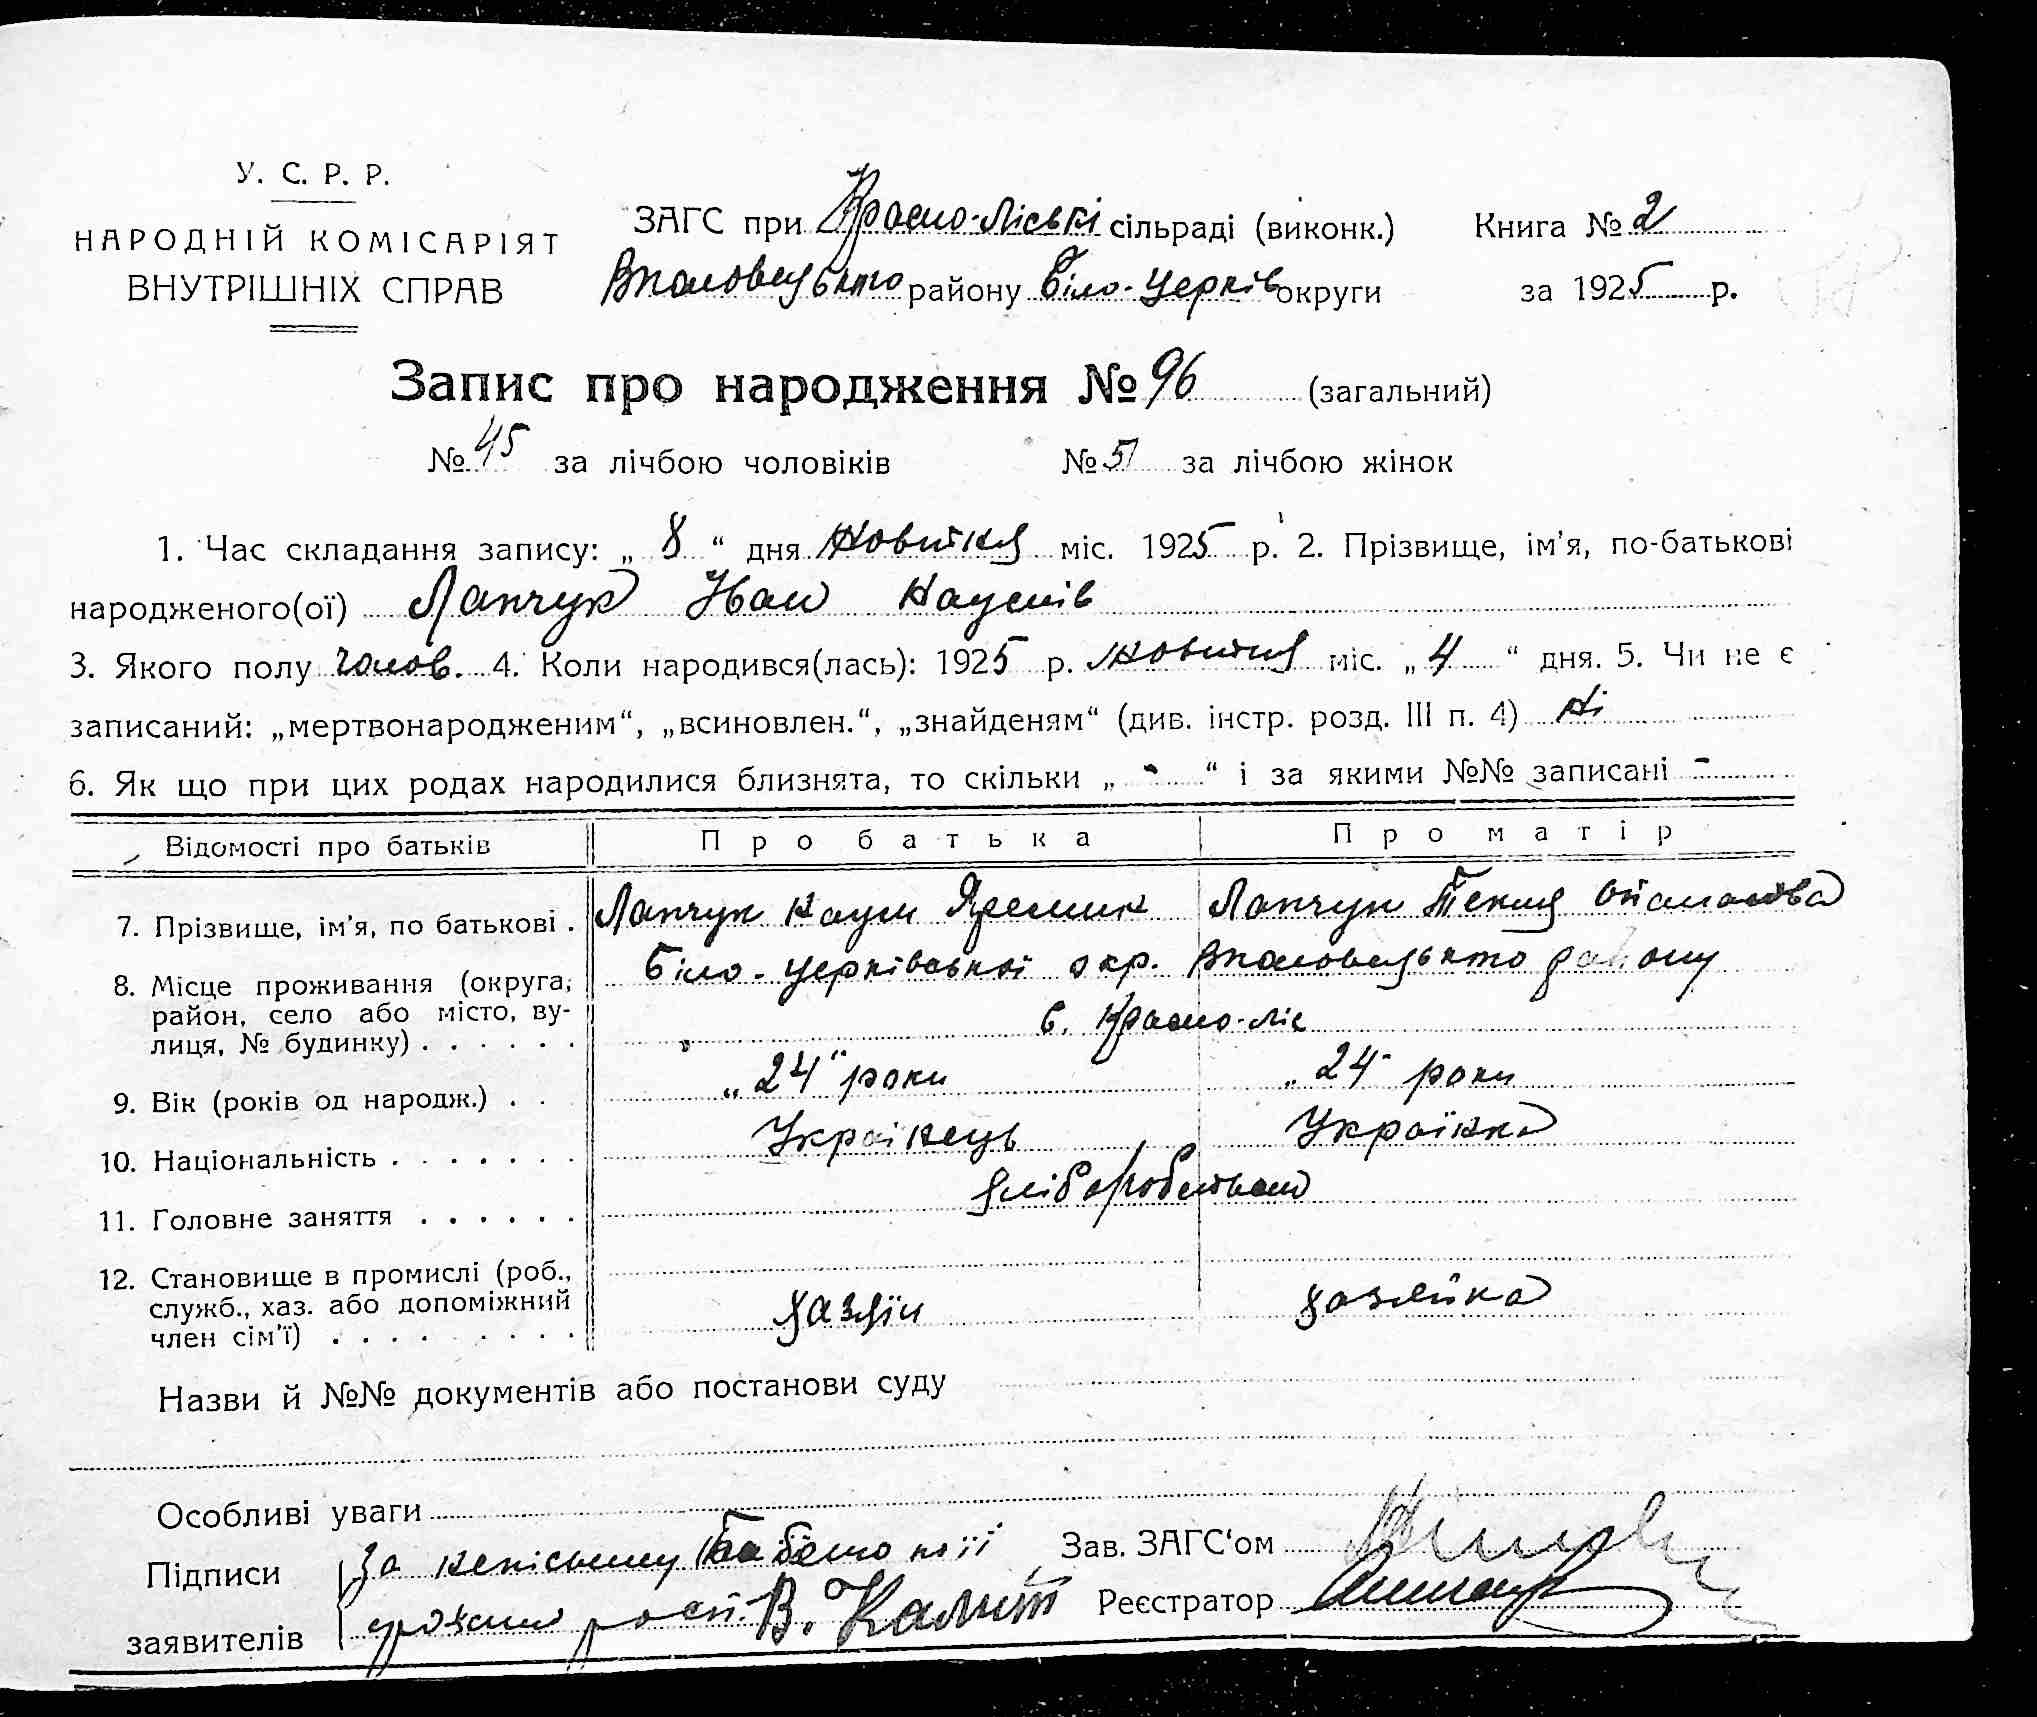 У. С. Р. Р.
НАРОДНІЙ КОМІСАРІЯТ
ВНУТРІШНІХ СПРАВ
ЗАГС при Красно-Ліські сільраді (виконк.)
Книга № 2
району Біло-Церків округи
за 1925 р.
Запис про народження № 96 (загальний)
№ 45 за лічбою чоловіків № 51 за лічбою жінок
1. Час складання запису: „ 8 “ дня Жовтня міс. 1925 р. 2. Прізвище, ім’я, по-батькові
народженого(ої) Лапчук Іван Наумів
3. Якого полу Чолов. 4. Коли народився(лась): 1925 р. Жовтня міс. „ 4 “ дня. 5. Чи не є
записаний: „мертвонародженим“, „всиновлен.“, „знайденям“ (див. інстр. розд. III п. 4) Ні
6. Як що при цих родах народилися близнята, то скільки „ - “ і за якими №№ записані -
Відомості про батьків Про батька Про матір
7. Прізвище, ім’я, по батькові . Лапчук Наум Лапчук Текля
8. Місце проживання (округа, Біло-церківської окр. району
район, село або місто, ву-
лиця, № будинку) . . . . . . с. Красно-ліс
9. Вік (років од народж.) . . „24“ роки „24“ роки
10. Національність . . . . . . . Українець Українка
11. Головне заняття . . . . . . хліборобством
12. Становище в промислі (роб.,
служб., хаз. або допоміжний хазяїн хазяйка
член сім’ї) . . . . . . . . .
Назви й №№ документів або постанови суду
Особливі уваги
Підписи За неписьмену
Зав. ЗАГС‘ом
заявителів В. Калит
Реєстратор